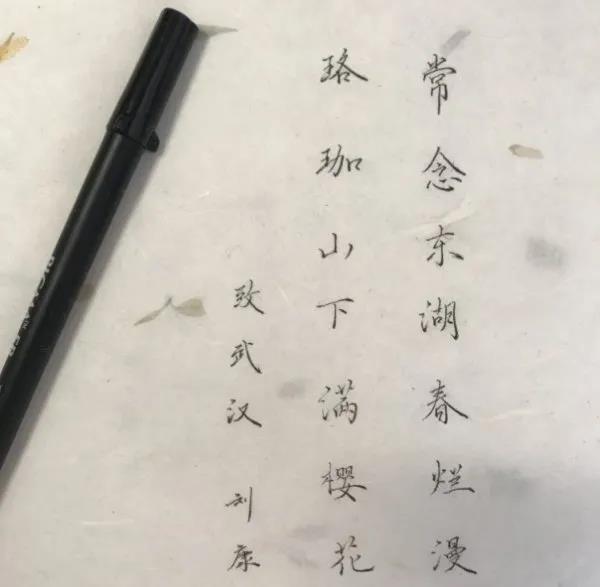 常念东湖春烂漫
珞珈山下满樱花
致武汉 刘康